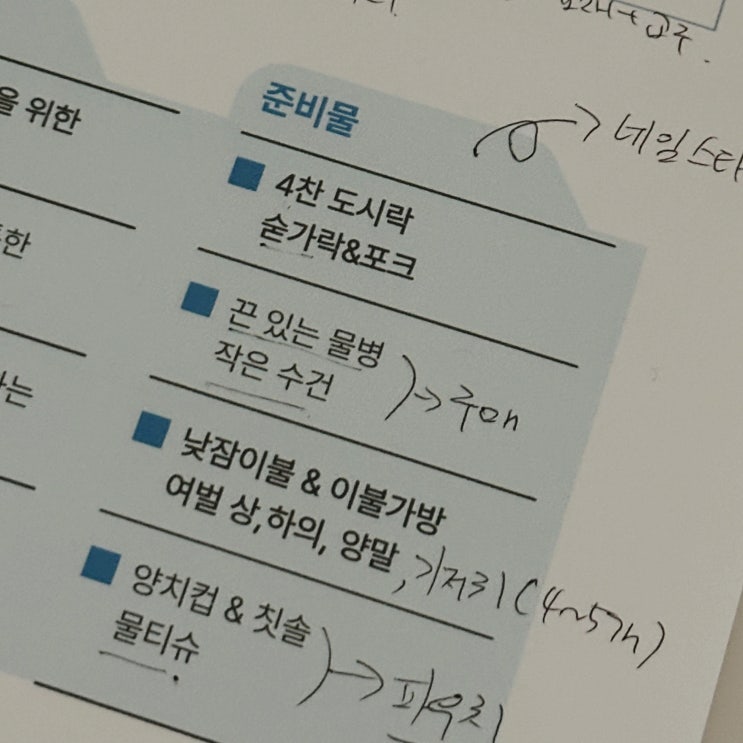 교구.
을 위한
준비물
네임스티
4찬 도시락
숟가락&포크
한
끈 있는 물병
작은 수건
→ 구매
는
낮잠이불 & 이불가방
여벌 상,하의, 양말, 기저귀 (4~5개)
양치컵 & 칫솔
물티슈
→ 파우치